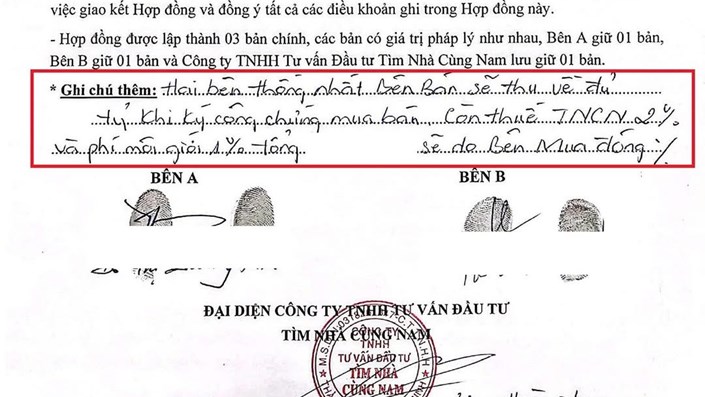 việc giao kết Hợp đồng và đồng ý tất cả các điều khoản ghi trong Hợp đồng này.
- Hợp đồng được lập thành 03 bản chính, các bản có giá trị pháp lý như nhau, Bên A giữ 01 bản,
Bên B giữ 01 bản và Công ty TNHH Tư vấn Đầu tư Tìm Nhà Cùng Nam lưu giữ 01 bản.
* Ghi chú thêm: Hai bên thống nhất Bên Bán sẽ thu về đủ
tỷ khi ký công chứng mua bán. Còn thuế TNCN 2%
và phí môi giới 1% tổng sẽ do Bên Mua đóng
BÊN A BÊN B
ĐẠI DIỆN CÔNG TY TNHH TƯ VẤN ĐẦU TƯ
TÌM NHÀ CÙNG NAM
CÔNG TY
TNHH
TƯ VẤN ĐẦU TƯ
TÌM NHÀ
CÙNG NAM